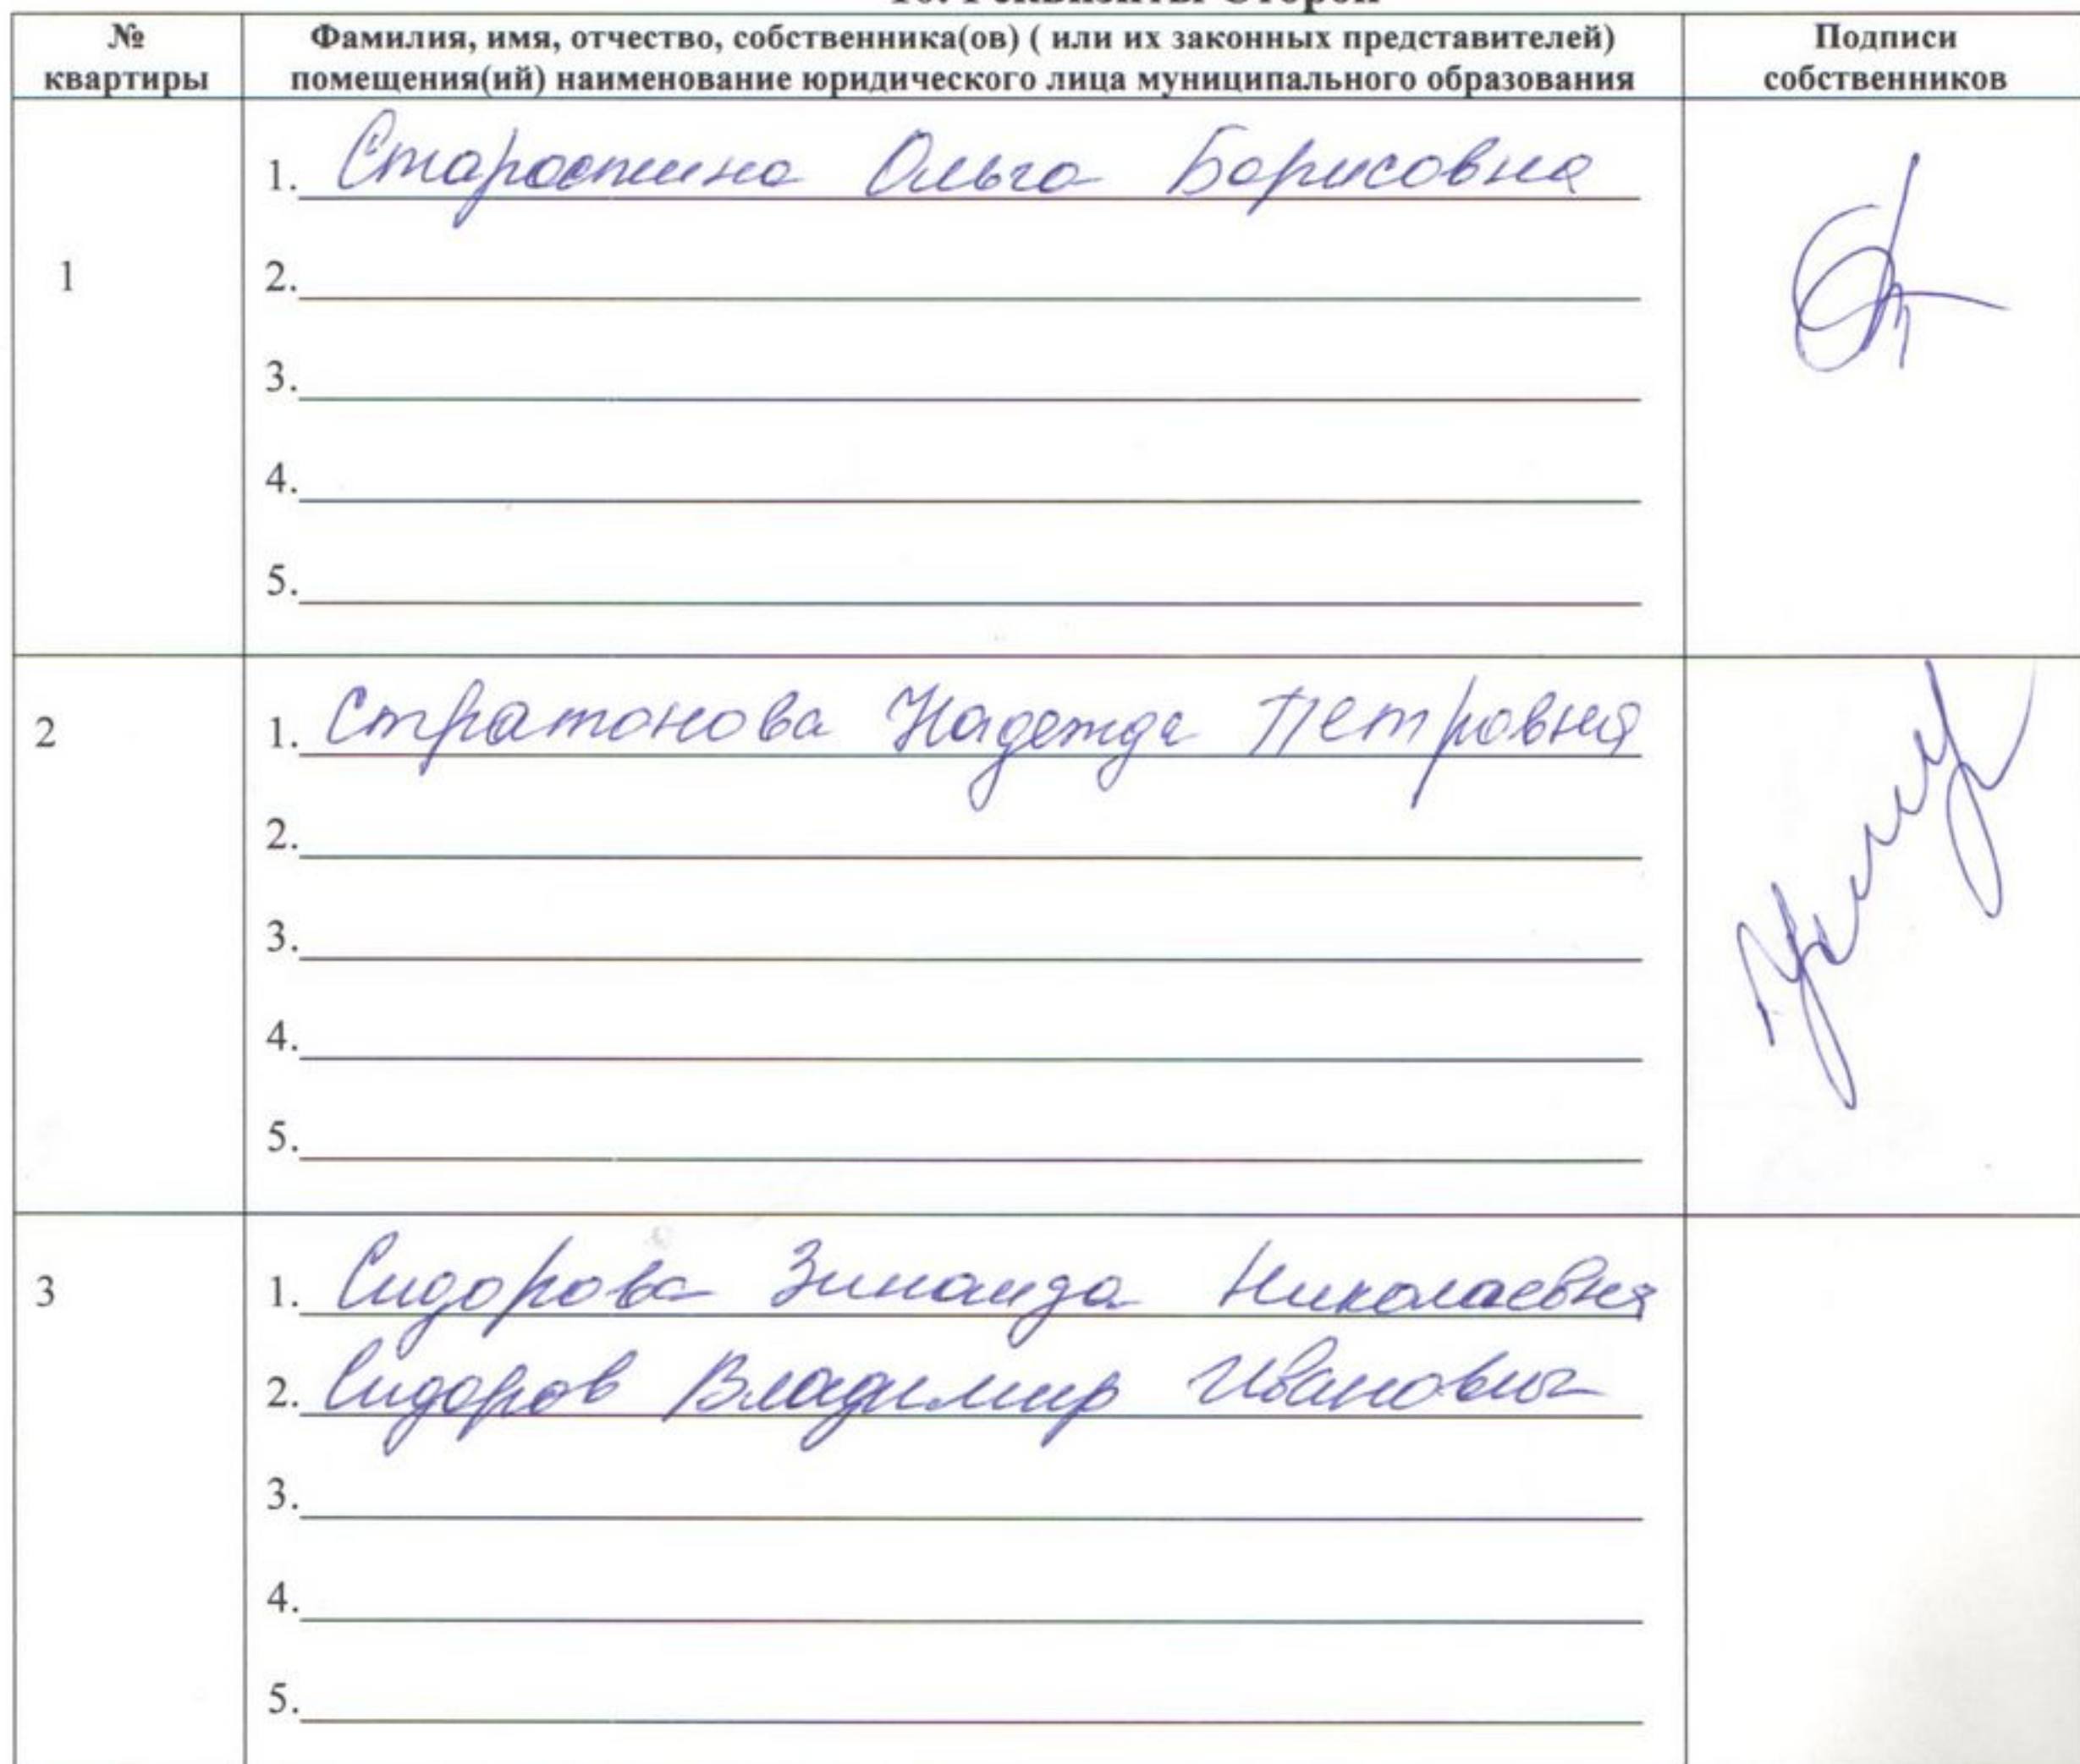 10. Реквизиты Сторон
№ квартиры
Фамилия, имя, отчество, собственника(ов) ( или их законных представителей)
помещения(ий) наименование юридического лица муниципального образования
Подписи
собственников
1
1. Старостина Ольга Борисовна
2.
3.
4.
5.
2
1. Стратонова Надежда Петровна
2.
3.
4.
5.
3
1. Сидорова Зинаида Николаевна
2. Сидоров Владимир Иванович
3.
4.
5.